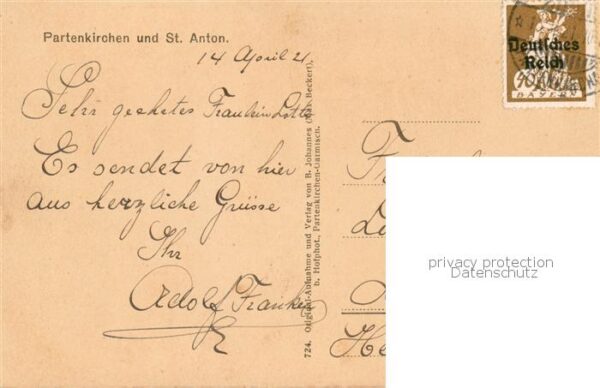 Partenkirchen und St. Anton.
14 April 21
Sehr geehrtes Fräulein Lotte
Es sendet von hier
aus herzliche Grüsse
Ihr
Adolf Franken
724. Original-Aufnahme und Verlag von B. Johannes (Max Beckert),
b. Hofphot., Partenkirchen-Garmisch.
Deutsches
Reich
BAYERN
privacy protection
Datenschutz